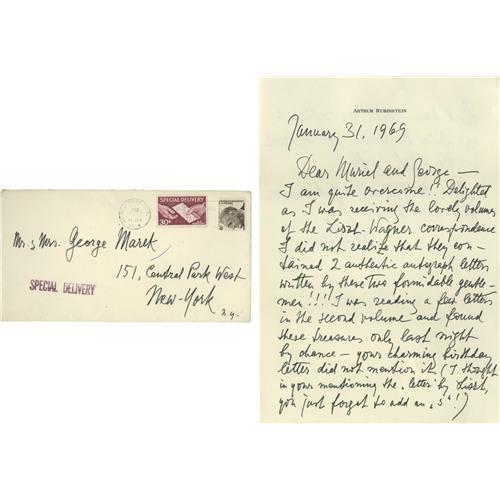 SPECIAL DELIVERY
30¢
Mr. & Mrs. George Marek
151, Central Park West
New-York
N.Y.
SPECIAL DELIVERY
ARTHUR RUBINSTEIN
January 31, 1969
Dear Muriel and George —
I am quite overcome! Delighted
as I was receiving the lovely volumes
of the Liszt-Wagner correspondence
I did not realize that they con-
tained 2 authentic autograph letters
written by these two formidable gentle-
men!!! I was reading a few letters
in the second volume and found
these treasures only last night
by chance — your charming birthday
letter did not mention it (I thought
in your mentioning the "letter by Liszt,
you just forgot to add an "s"!)